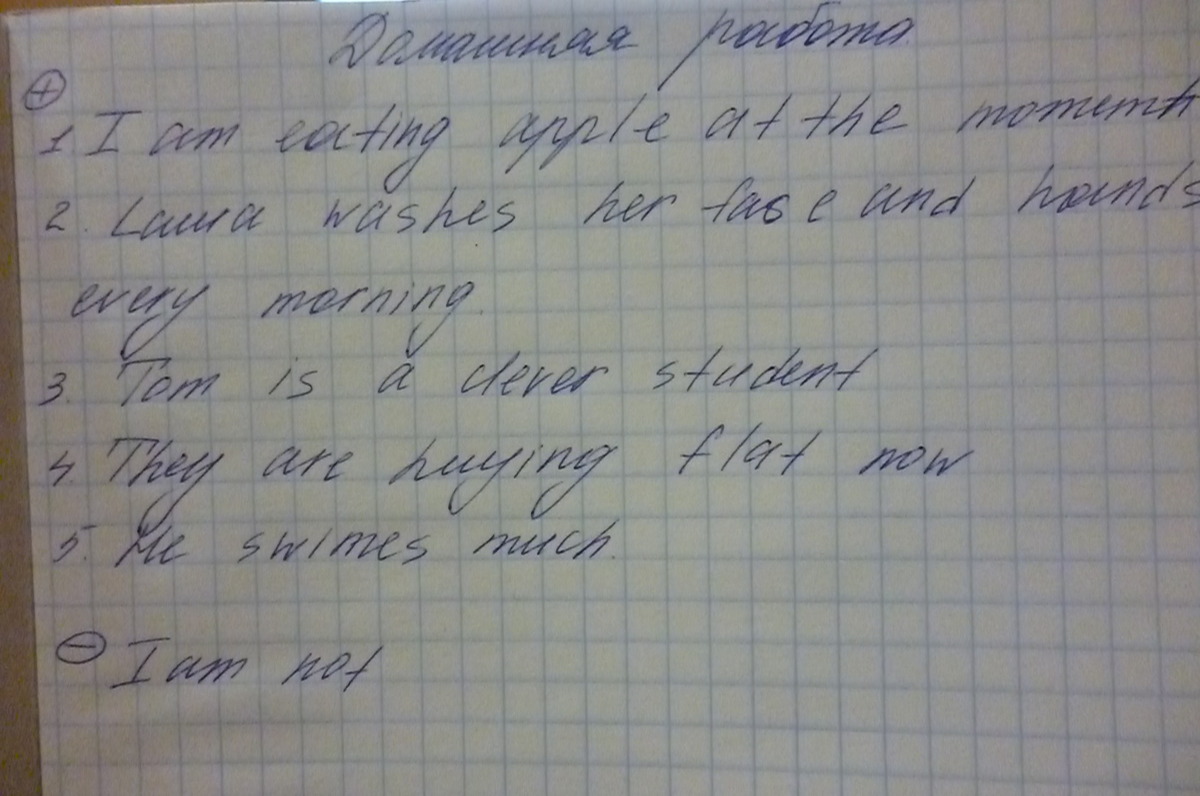 Домашная работа
+
1. I am eating apple at the moment
2. Laura washes her face and hands
every morning.
3. Tom is a clever student
4. They are buying flat now
5. He swimes much.
- I am not